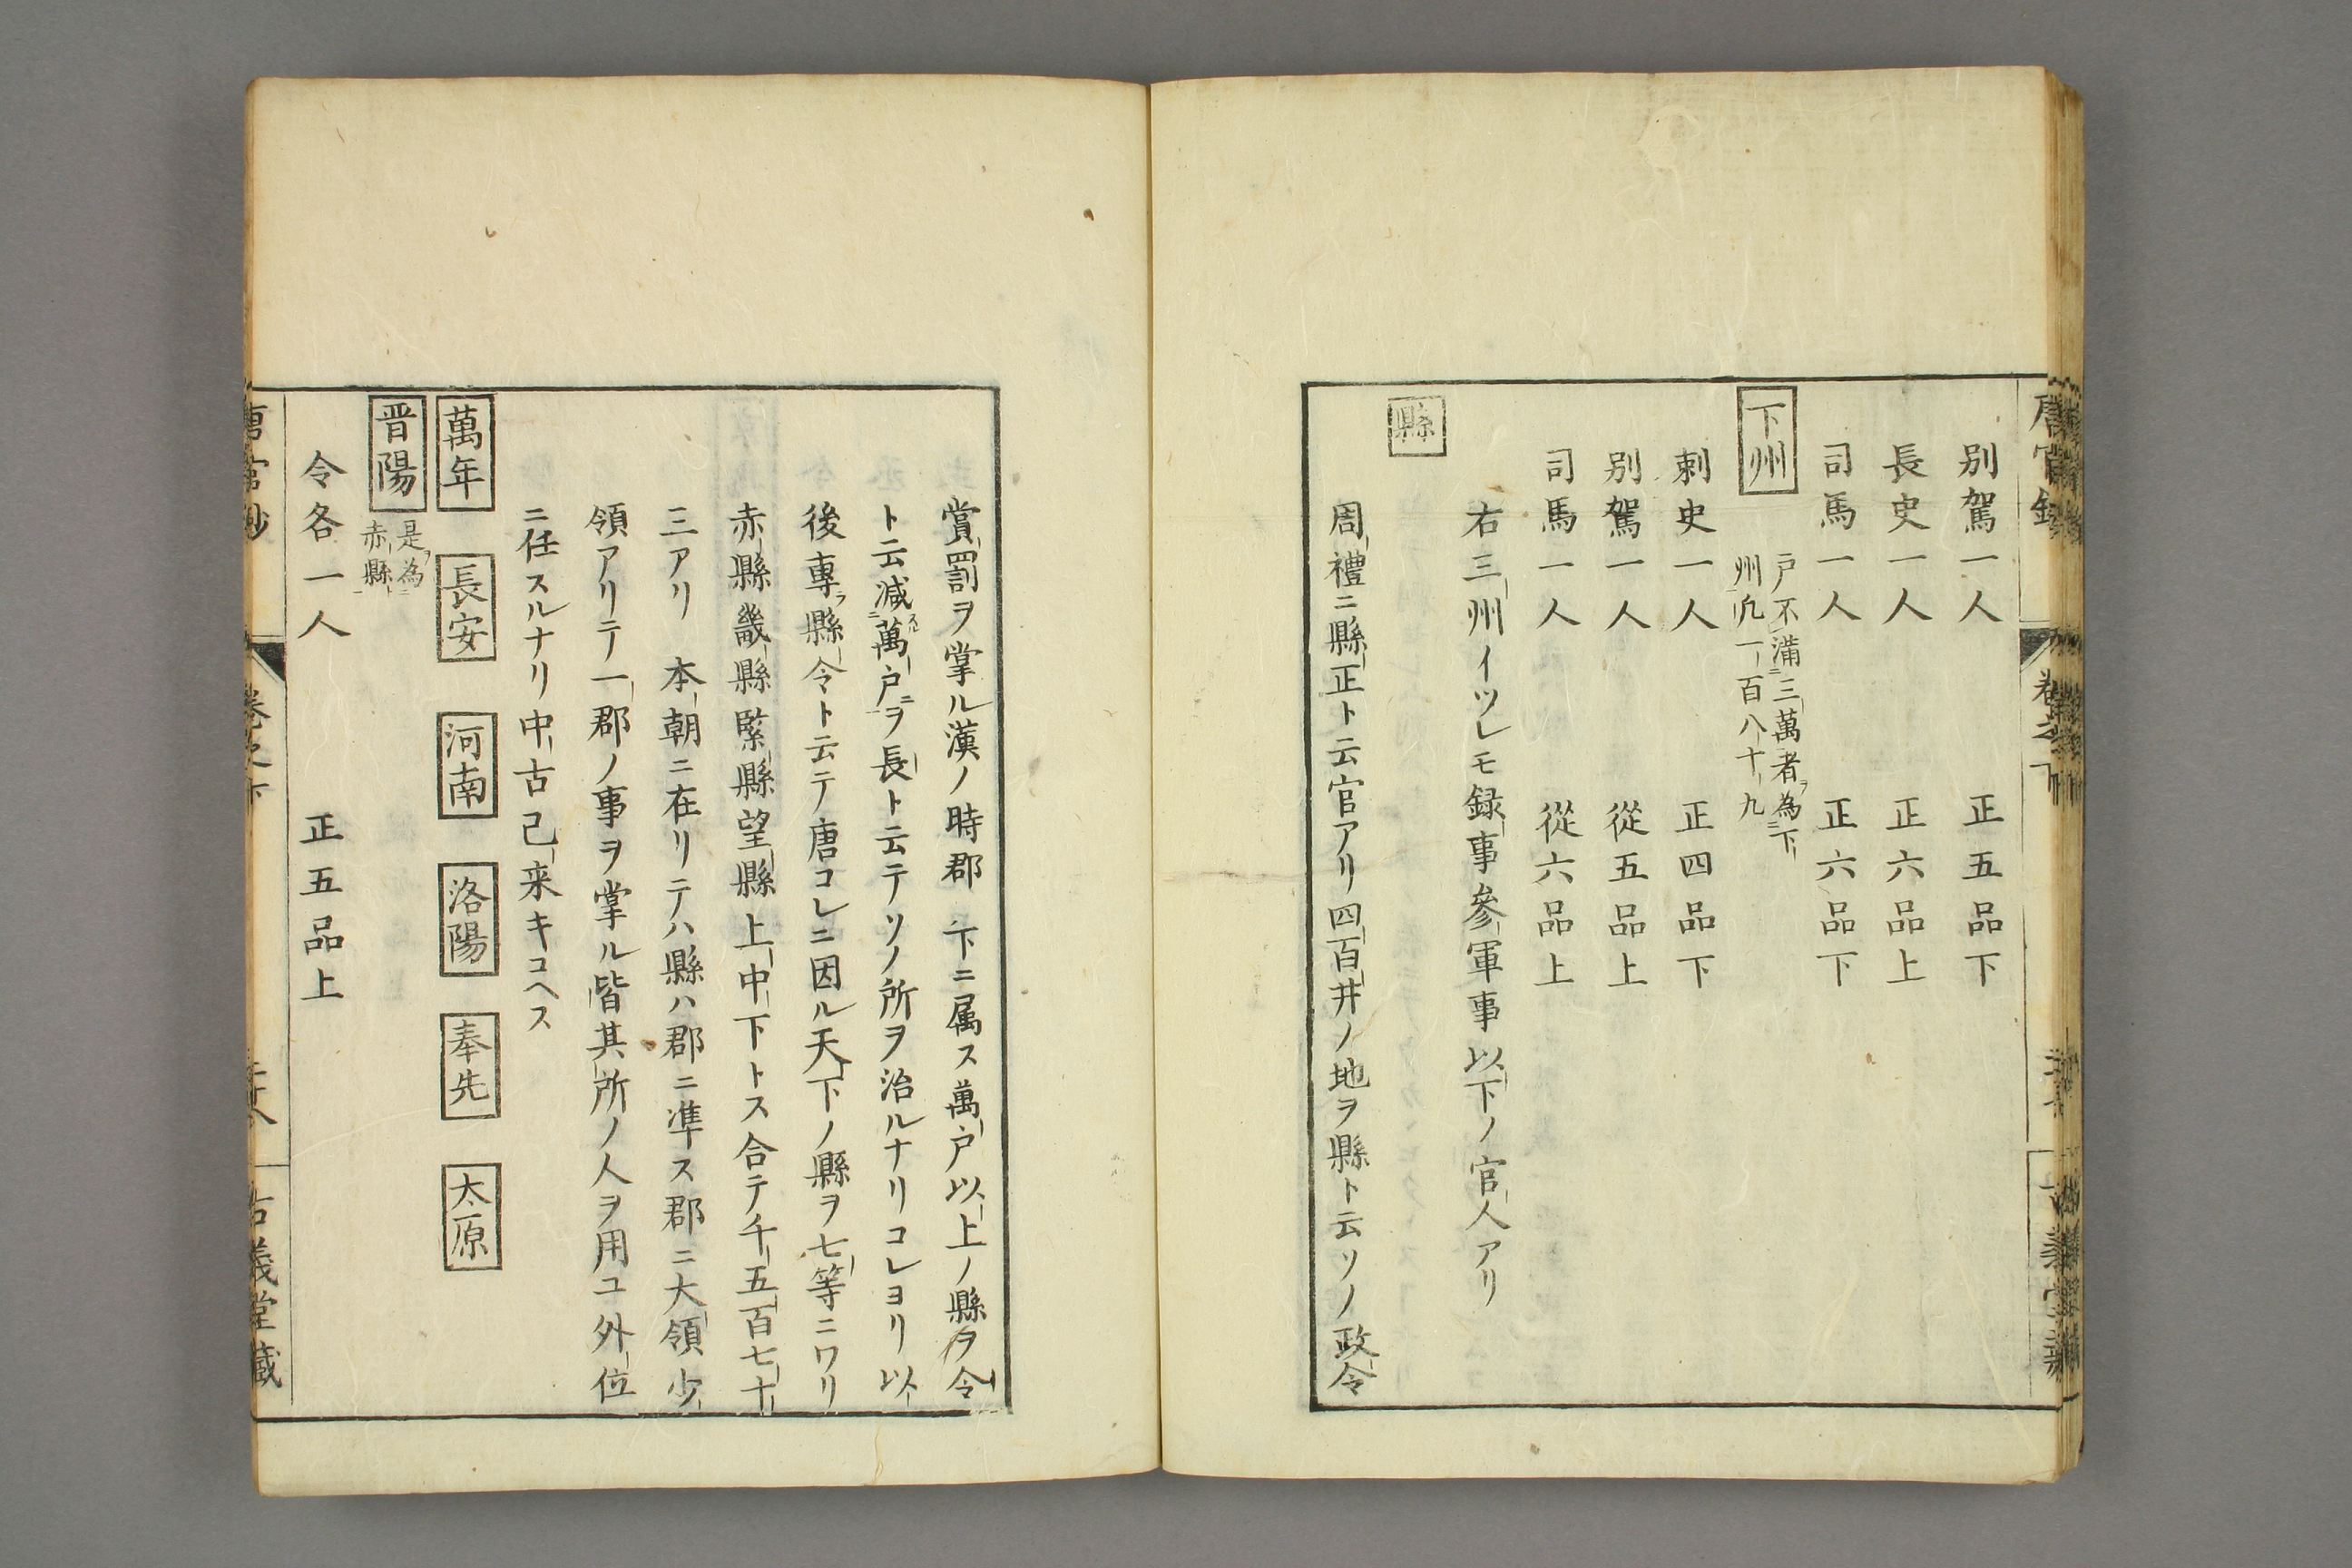 別駕一人 正五品下
長史一人 正六品上
司馬一人 正六品下
下州 戸不滿三萬者為下
州凢一百八十九
刺史一人 正四品下
別駕一人 從五品上
司馬一人 從六品上
右三州イツレモ録事參軍事以下ノ官人アリ
縣
周禮ニ縣正ト云官アリ四百井ノ地ヲ縣ト云ソノ政令
賞罰ヲ掌ル漢ノ時郡下ニ属ス萬戸以上ノ縣ヲ令
ト云減スル萬戸ニヲ長ト云テソノ所ヲ治ルナリコレヨリ以
後専ラ縣令ト云テ唐コレニ因ル天下ノ縣ヲ七等ニワリ
赤縣畿縣緊縣望縣上中下トス合テ千五百七十
三アリ 本朝ニ在リテハ縣ハ郡ニ準ス郡ニ大領少
領アリテ一郡ノ事ヲ掌ル皆其所ノ人ヲ用ユ外位
ニ任スルナリ中古已来キコヘス
萬年 長安 河南 洛陽 奉先 太原
晋陽 是ヲ為
赤縣
令各一人 正五品上
唐官鈔 卷之下 古義堂藏